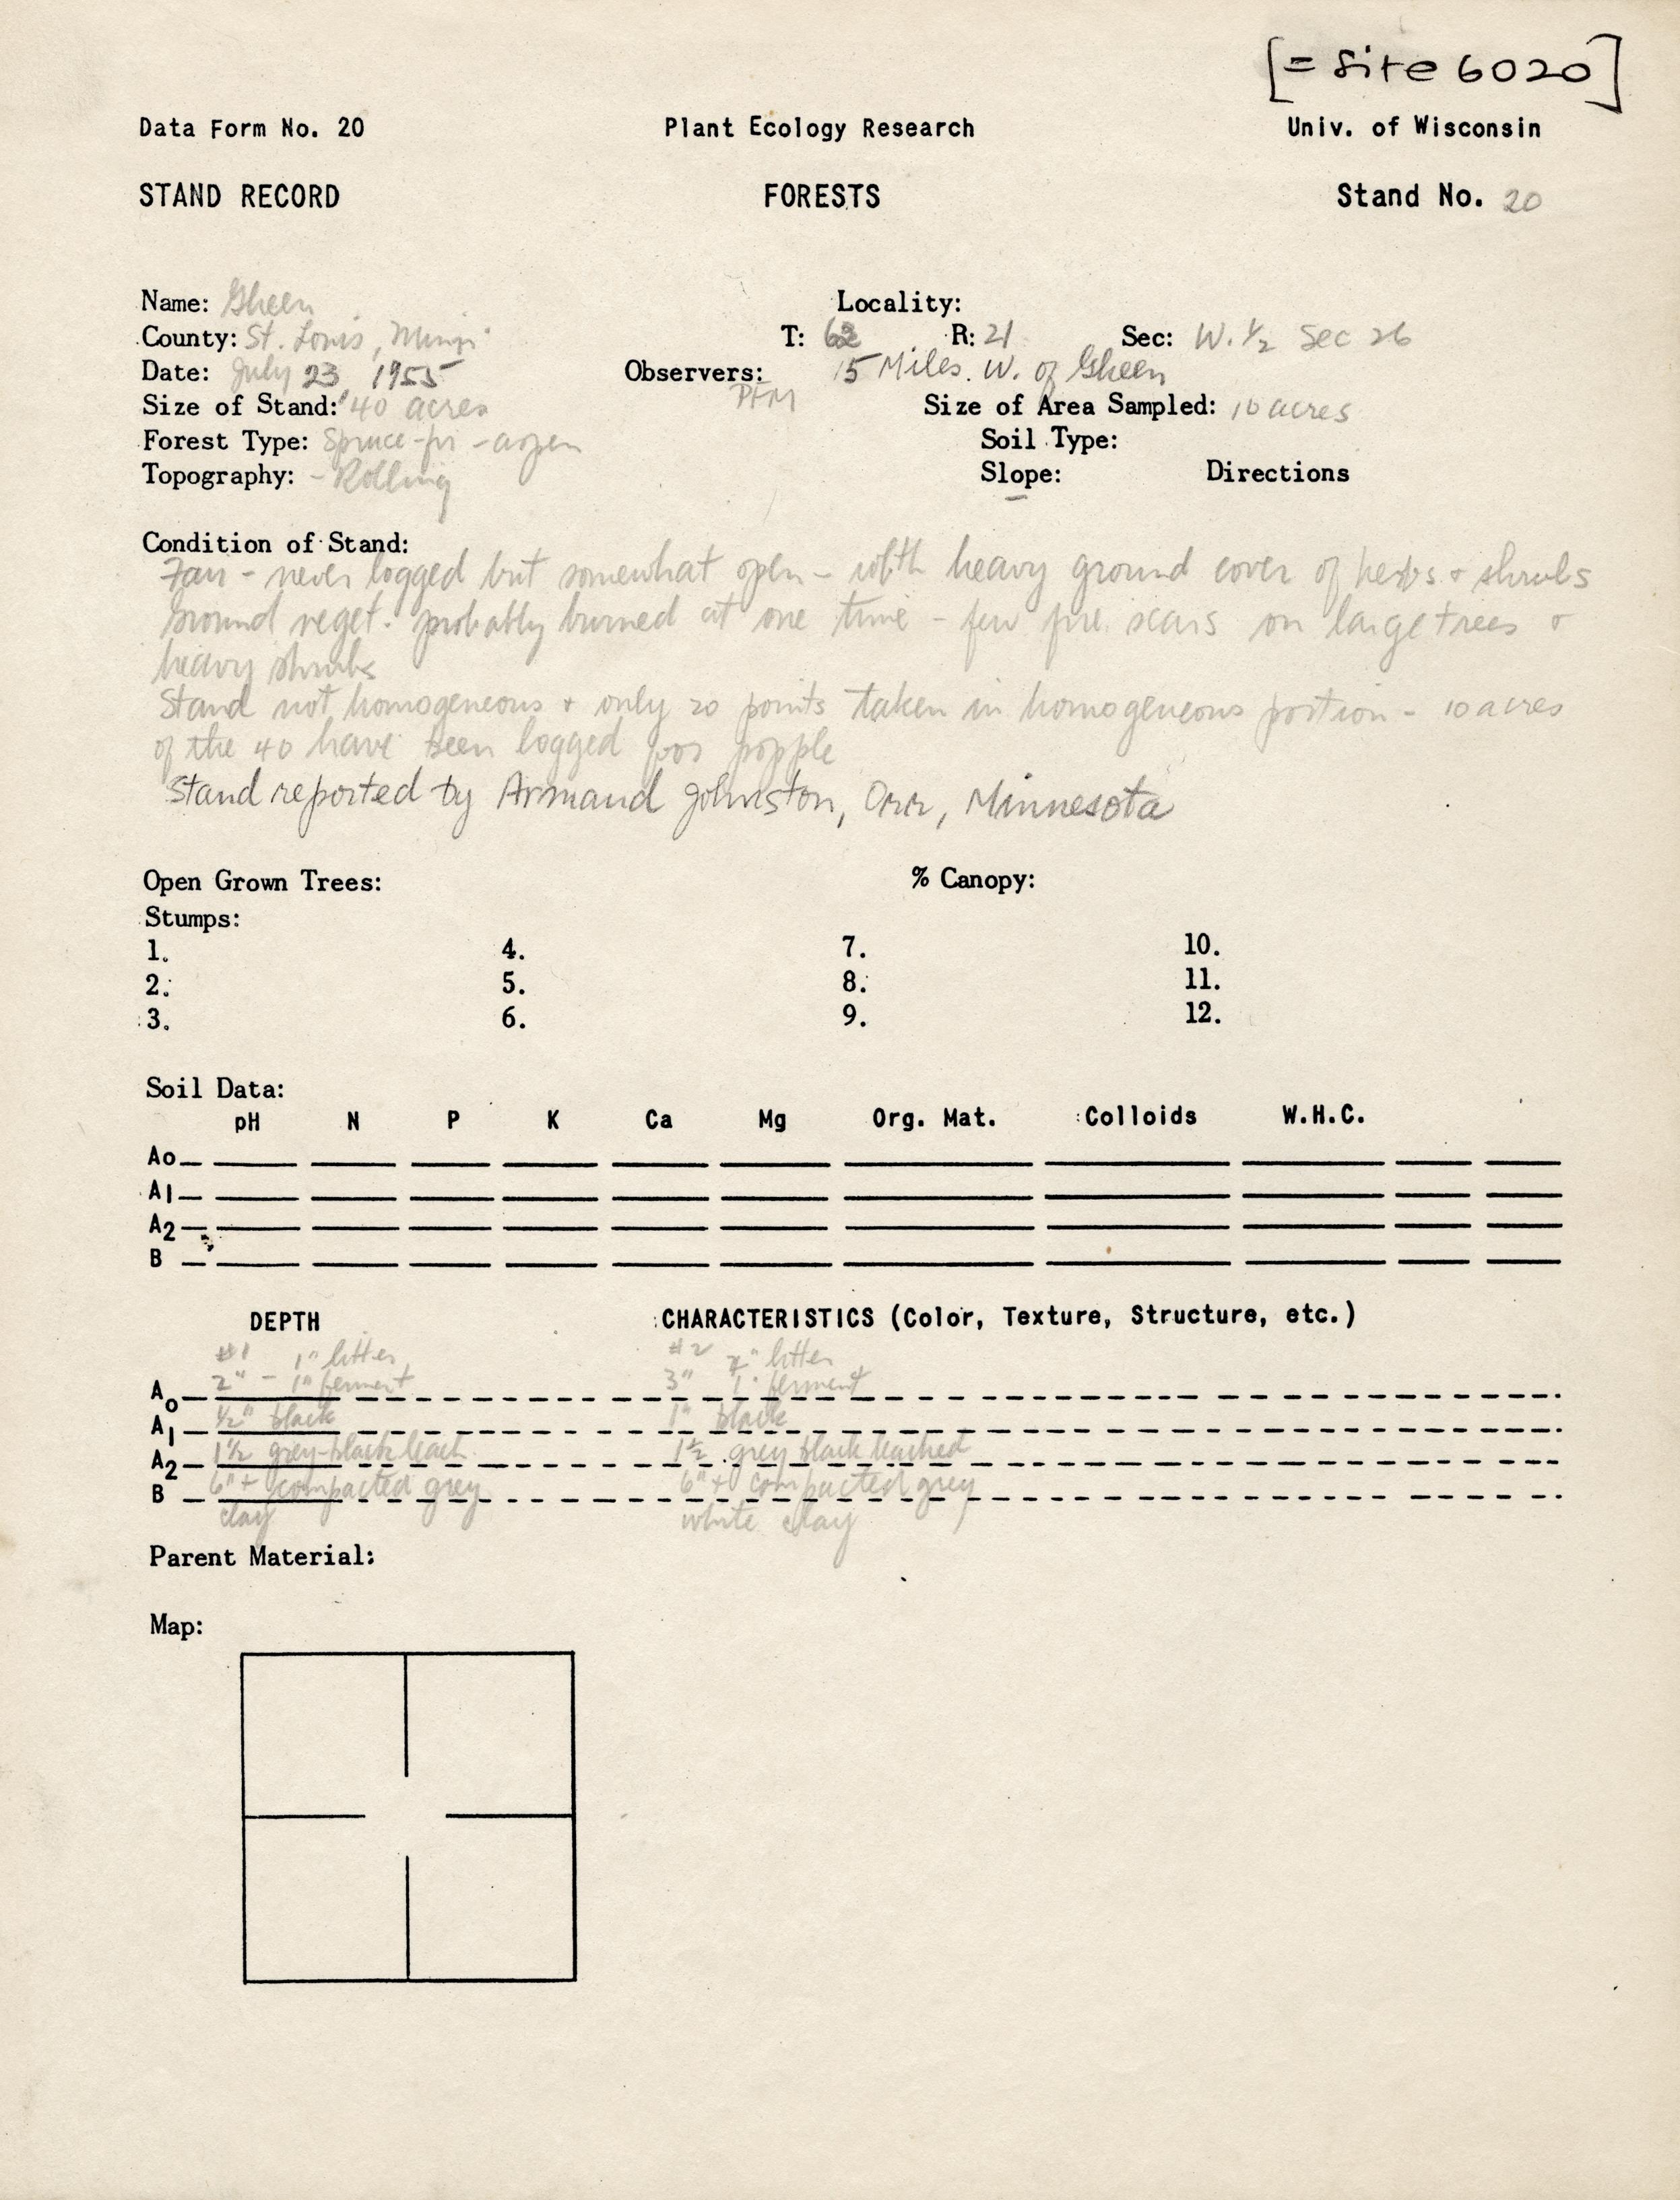 [= Site 6020]
Data Form No. 20 Plant Ecology Research Univ. of Wisconsin
STAND RECORD FORESTS Stand No. 20
Name: Gheen Locality:
County: St. Louis, Minn. T: 62 R: 21 Sec: W. 1/2 Sec 26
Date: July 23 1955 Observers: 15 Miles. W. of Gheen
PFM
Size of Stand: 40 acres Size of Area Sampled: 10 acres
Forest Type: Spruce-fir-aspen Soil Type:
Topography: - Rolling Slope: Directions
Condition of Stand:
Fair - never logged but somewhat open - with heavy ground cover of herbs + shrubs
Ground veget. probably burned at one time - few fire scars on large trees +
heavy shrubs
Stand not homogeneous + only 20 points taken in homogeneous portion - 10 acres
of the 40 have been logged for popple
Stand reported by Armand Johnston, Orr, Minnesota
Open Grown Trees: % Canopy:
Stumps:
1. 4. 7. 10.
2. 5. 8. 11.
3. 6. 9. 12.
Soil Data:
pH N P K Ca Mg Org. Mat. Colloids W.H.C.
Ao
A1
A2
B
DEPTH CHARACTERISTICS (Color, Texture, Structure, etc.)
#1 1" litter #2 litter
Ao 2" - 1" ferment 3" 1" ferment
A1 1/2" black 1" black
A2 1 1/2 grey-black leach 1 1/2 grey black leached
B 6"+ compacted grey 6"+ compacted grey
clay white clay
Parent Material:
Map: